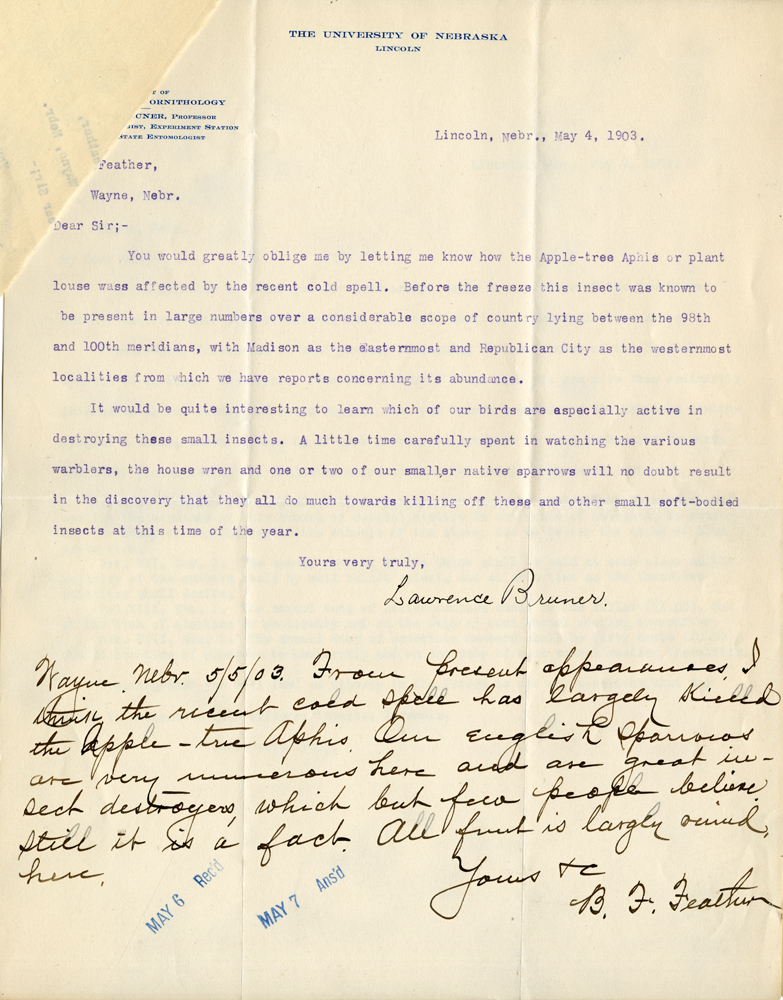 THE UNIVERSITY OF NEBRASKA
LINCOLN
T OF
ORNITHOLOGY
UNER, PROFESSOR
GIST, EXPERIMENT STATION
STATE ENTOMOLOGIST
Lincoln, Nebr., May 4, 1903.
Feather,
Wayne, Nebr.
Dear Sir;-
You would greatly oblige me by letting me know how the Apple-tree Aphis or plant
louse wass affected by the recent cold spell. Before the freeze this insect was known to
be present in large numbers over a considerable scope of country lying between the 98th
and 100th meridians, with Madison as the easternmost and Republican City as the westernmost
localities from which we have reports concerning its abundance.
It would be quite interesting to learn which of our birds are especially active in
destroying these small insects. A little time carefully spent in watching the various
warblers, the house wren and one or two of our smaller native sparrows will no doubt result
in the discovery that they all do much towards killing off these and other small soft-bodied
insects at this time of the year.
Yours very truly,
Lawrence Bruner.
Wayne Nebr. 5/5/03. From present appearances, I
think the recent cold spell has largely killed
the apple-tree Aphis. Our english sparrows
are very numerous here and are great in-
sect destroyers, which but few people believe
still it is a fact. All fruit is largly ruined,
here.
Yours &c
B. F. Feather
MAY 6 Rec'd
MAY 7 Ans'd